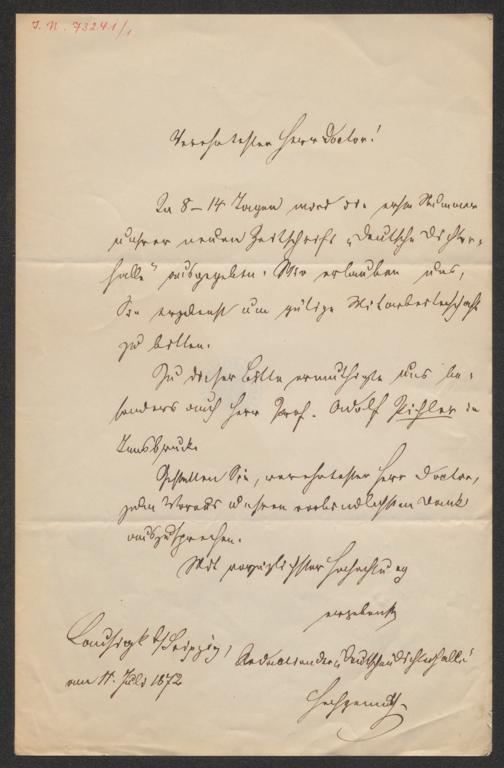 I. N. 73241/1
Verehrtester Herr Doctor!
In 8–14 Tagen wird die erste Nummer
unserer neuen Zeitschrift „Deutsche Dichter-
halle“ ausgegeben. Wir erlauben uns,
Sie ergebenst um gütige Mitarbeiterschaft
zu bitten.
Zu dieser Bitte ermuthigte uns be-
sonders auch Herr Prof. Adolf Pichler in
Innsbruck.
Gestatten Sie, verehrtester Herr Doctor,
zum Voraus unseren verbindlichsten Dank
auszusprechen.
Mit vorzüglichster Hochachtung
ergebenst
Redaction der „Deutschen Dichterhalle“
Lausigk b/Leipzig,
am 11. Juli 1872